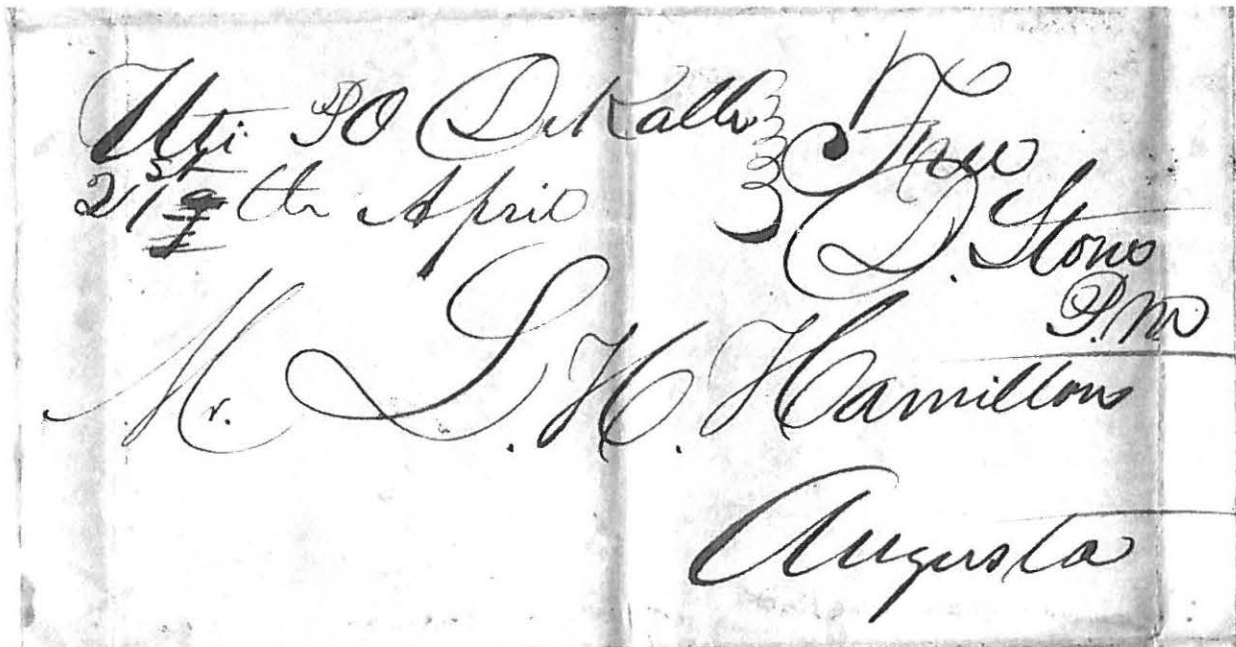 Uti PO DeKalb
21st th April
Free
D. Stone
P.M
Mr. L. H. Hamilton
Augusta